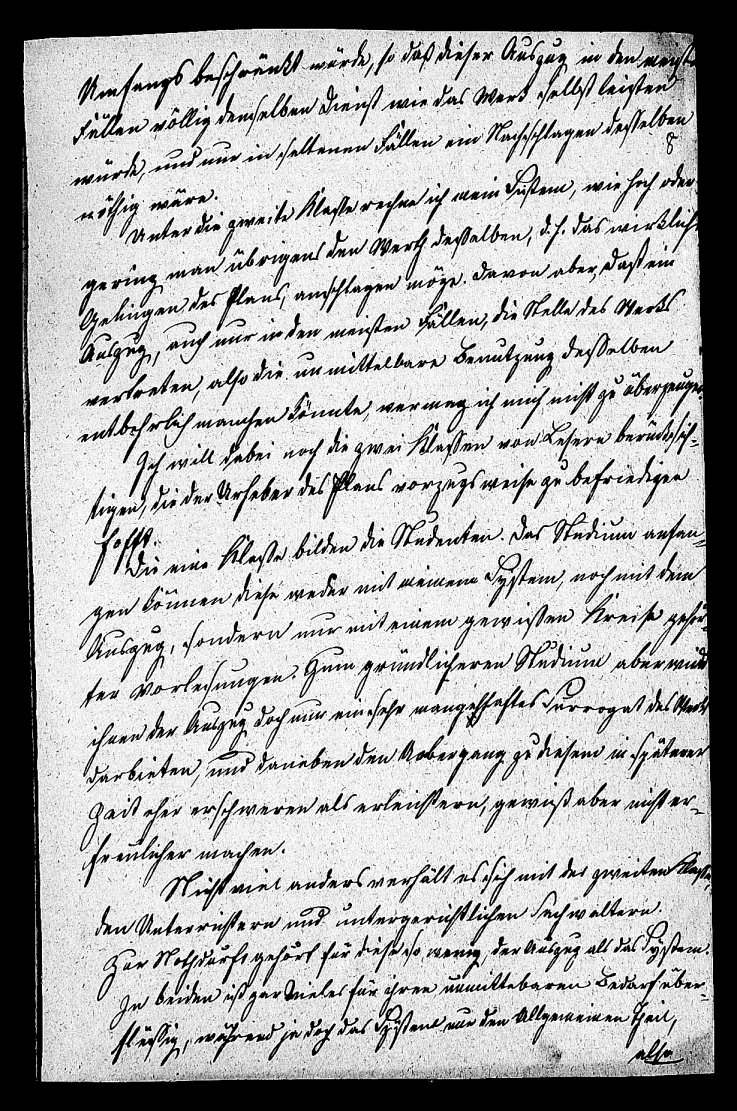 Umfangs beschränkt würde, so daß dieser Auszug in den meisten
Fällen völlig demselben Dienst wie das Werk selbst leisten
8
würde, und nur in seltenen Fällen ein Nachschlagen desselben
nöthig wäre.
Unter die zweite Klasse rechne ich mein System, wie hoch oder
gering man übrigens den Werth desselben, d. h. das wirkliche
Gelingen des Plans, anschlagen möge. Davon aber, daß ein
Auszug, auch nur in den meisten Fällen, die Stelle des Werks
vertreten, also die unmittelbare Benutzung desselben
entbehrlich machen könnte, vermag ich mich nicht zu überzeugen.
Ich will dabei noch die zwei Klassen von Lesern berücksich-
tigen, die der Urheber des Plans vorzugsweise zu befriedigen
hofft.
Die eine Klasse bilden die Studenten. Das Studium anfan-
gen können diese weder mit meinem System, noch mit dem
Auszug, sondern nur mit einem gewissen Kreise gehör-
ter Vorlesungen. Zum gründlicheren Studium aber würde
ihnen der Auszug doch nur ein sehr mangelhaftes Surrogat des Werks
darbieten, und daneben den Uebergang zu diesem in späterer
Zeit eher erschweren als erleichtern, gewiß aber nicht er-
freulicher machen.
Nicht viel anders verhält es sich mit der zweiten Klasse,
den Unterrichtern und untergerichtlichen Sachwaltern.
Zur Nothdurft gehört für diese so wenig der Auszug als das System.
In beiden ist gar Vieles für ihren unmittelbaren Bedarf über-
flüssig, während ja doch das System nur den Allgemeinen Theil,
also